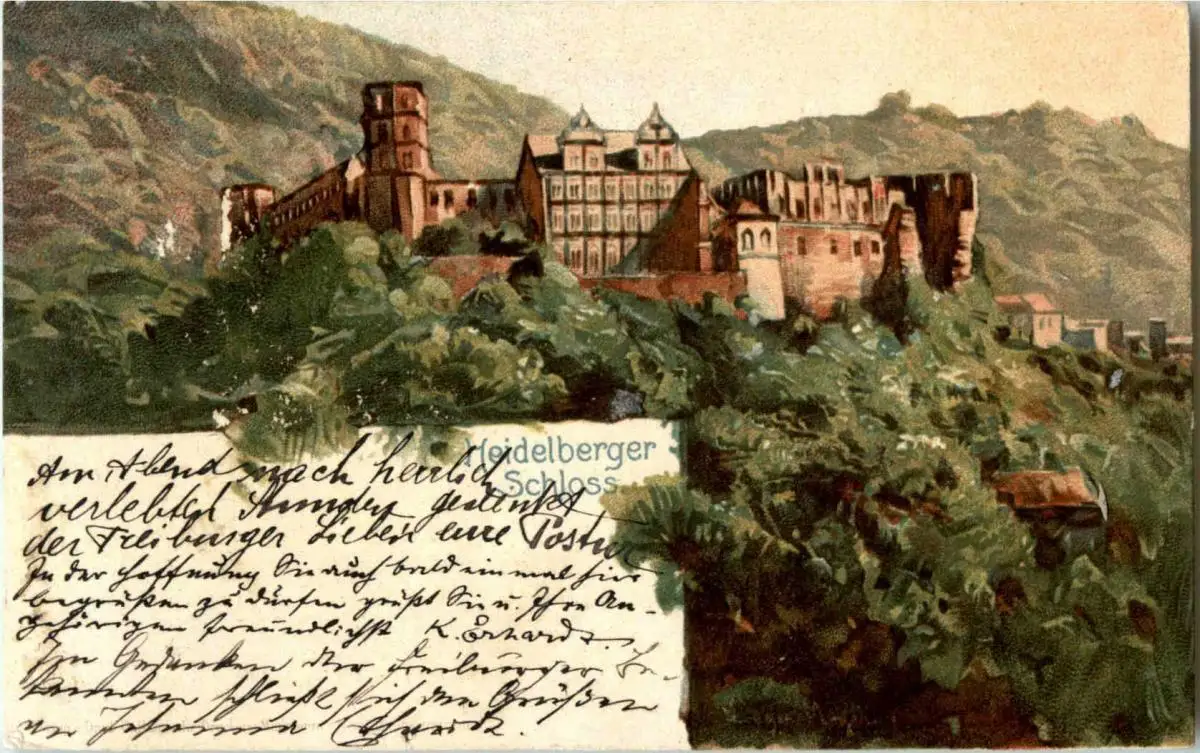 Heidelberger
Schloss
Am Abend nach herrlich
verlebten Stunden gedenkt
der Freiburger Lieben eure
In der Hoffnung Sie auch bald einmal hier
begrüßen zu dürfen grüßt Sie u. Ihre An-
gehörigen freundlichst K. Erhardt.
In Gedanken der Freiburger Be-
kannten schließt sich den Grüßen
an Johanna Erhardt.